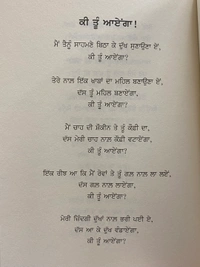 ਕੀ ਤੂੰ ਆਏਂਗਾ!
ਮੈਂ ਤੈਨੂੰ ਸਾਹਮਣੇ ਬਿਠਾ ਕੇ ਦੁੱਖ ਸੁਣਾਉਣਾ ਏਂ,
ਕੀ ਤੂੰ ਆਏਂਗਾ!
ਤੇਰੇ ਨਾਲ ਇੱਕ ਖ਼ਾਬਾਂ ਦਾ ਮਹਿਲ ਬਣਾਉਣਾ ਏਂ,
ਦੱਸ ਤੂੰ ਮਹਿਲ ਬਣਾਏਂਗਾ,
ਕੀ ਤੂੰ ਆਏਂਗਾ!
ਮੈਂ ਚਾਹ ਦੀ ਸ਼ੌਕੀਨ ਤੇ ਤੂੰ ਕੌਫੀ ਦਾ,
ਦੱਸ ਮੇਰੀ ਚਾਹ ਨਾਲ ਕੌਫੀ ਵਟਾਏਂਗਾ,
ਕੀ ਤੂੰ ਆਏਂਗਾ!
ਇੱਕ ਰੀਝ ਆ ਕਿ ਮੈਂ ਰੋਵਾਂ ਤੇ ਤੂੰ ਗਲ ਨਾਲ ਲਾ ਲਏਂ,
ਦੱਸ ਗਲ ਨਾਲ ਲਾਏਂਗਾ,
ਕੀ ਤੂੰ ਆਏਂਗਾ!
ਮੇਰੀ ਜ਼ਿੰਦਗੀ ਦੁੱਖਾਂ ਨਾਲ ਭਰੀ ਪਈ ਏ,
ਦੱਸ ਆ ਕੇ ਦੁੱਖ ਵੰਡਾਏਂਗਾ,
ਕੀ ਤੂੰ ਆਏਂਗਾ!